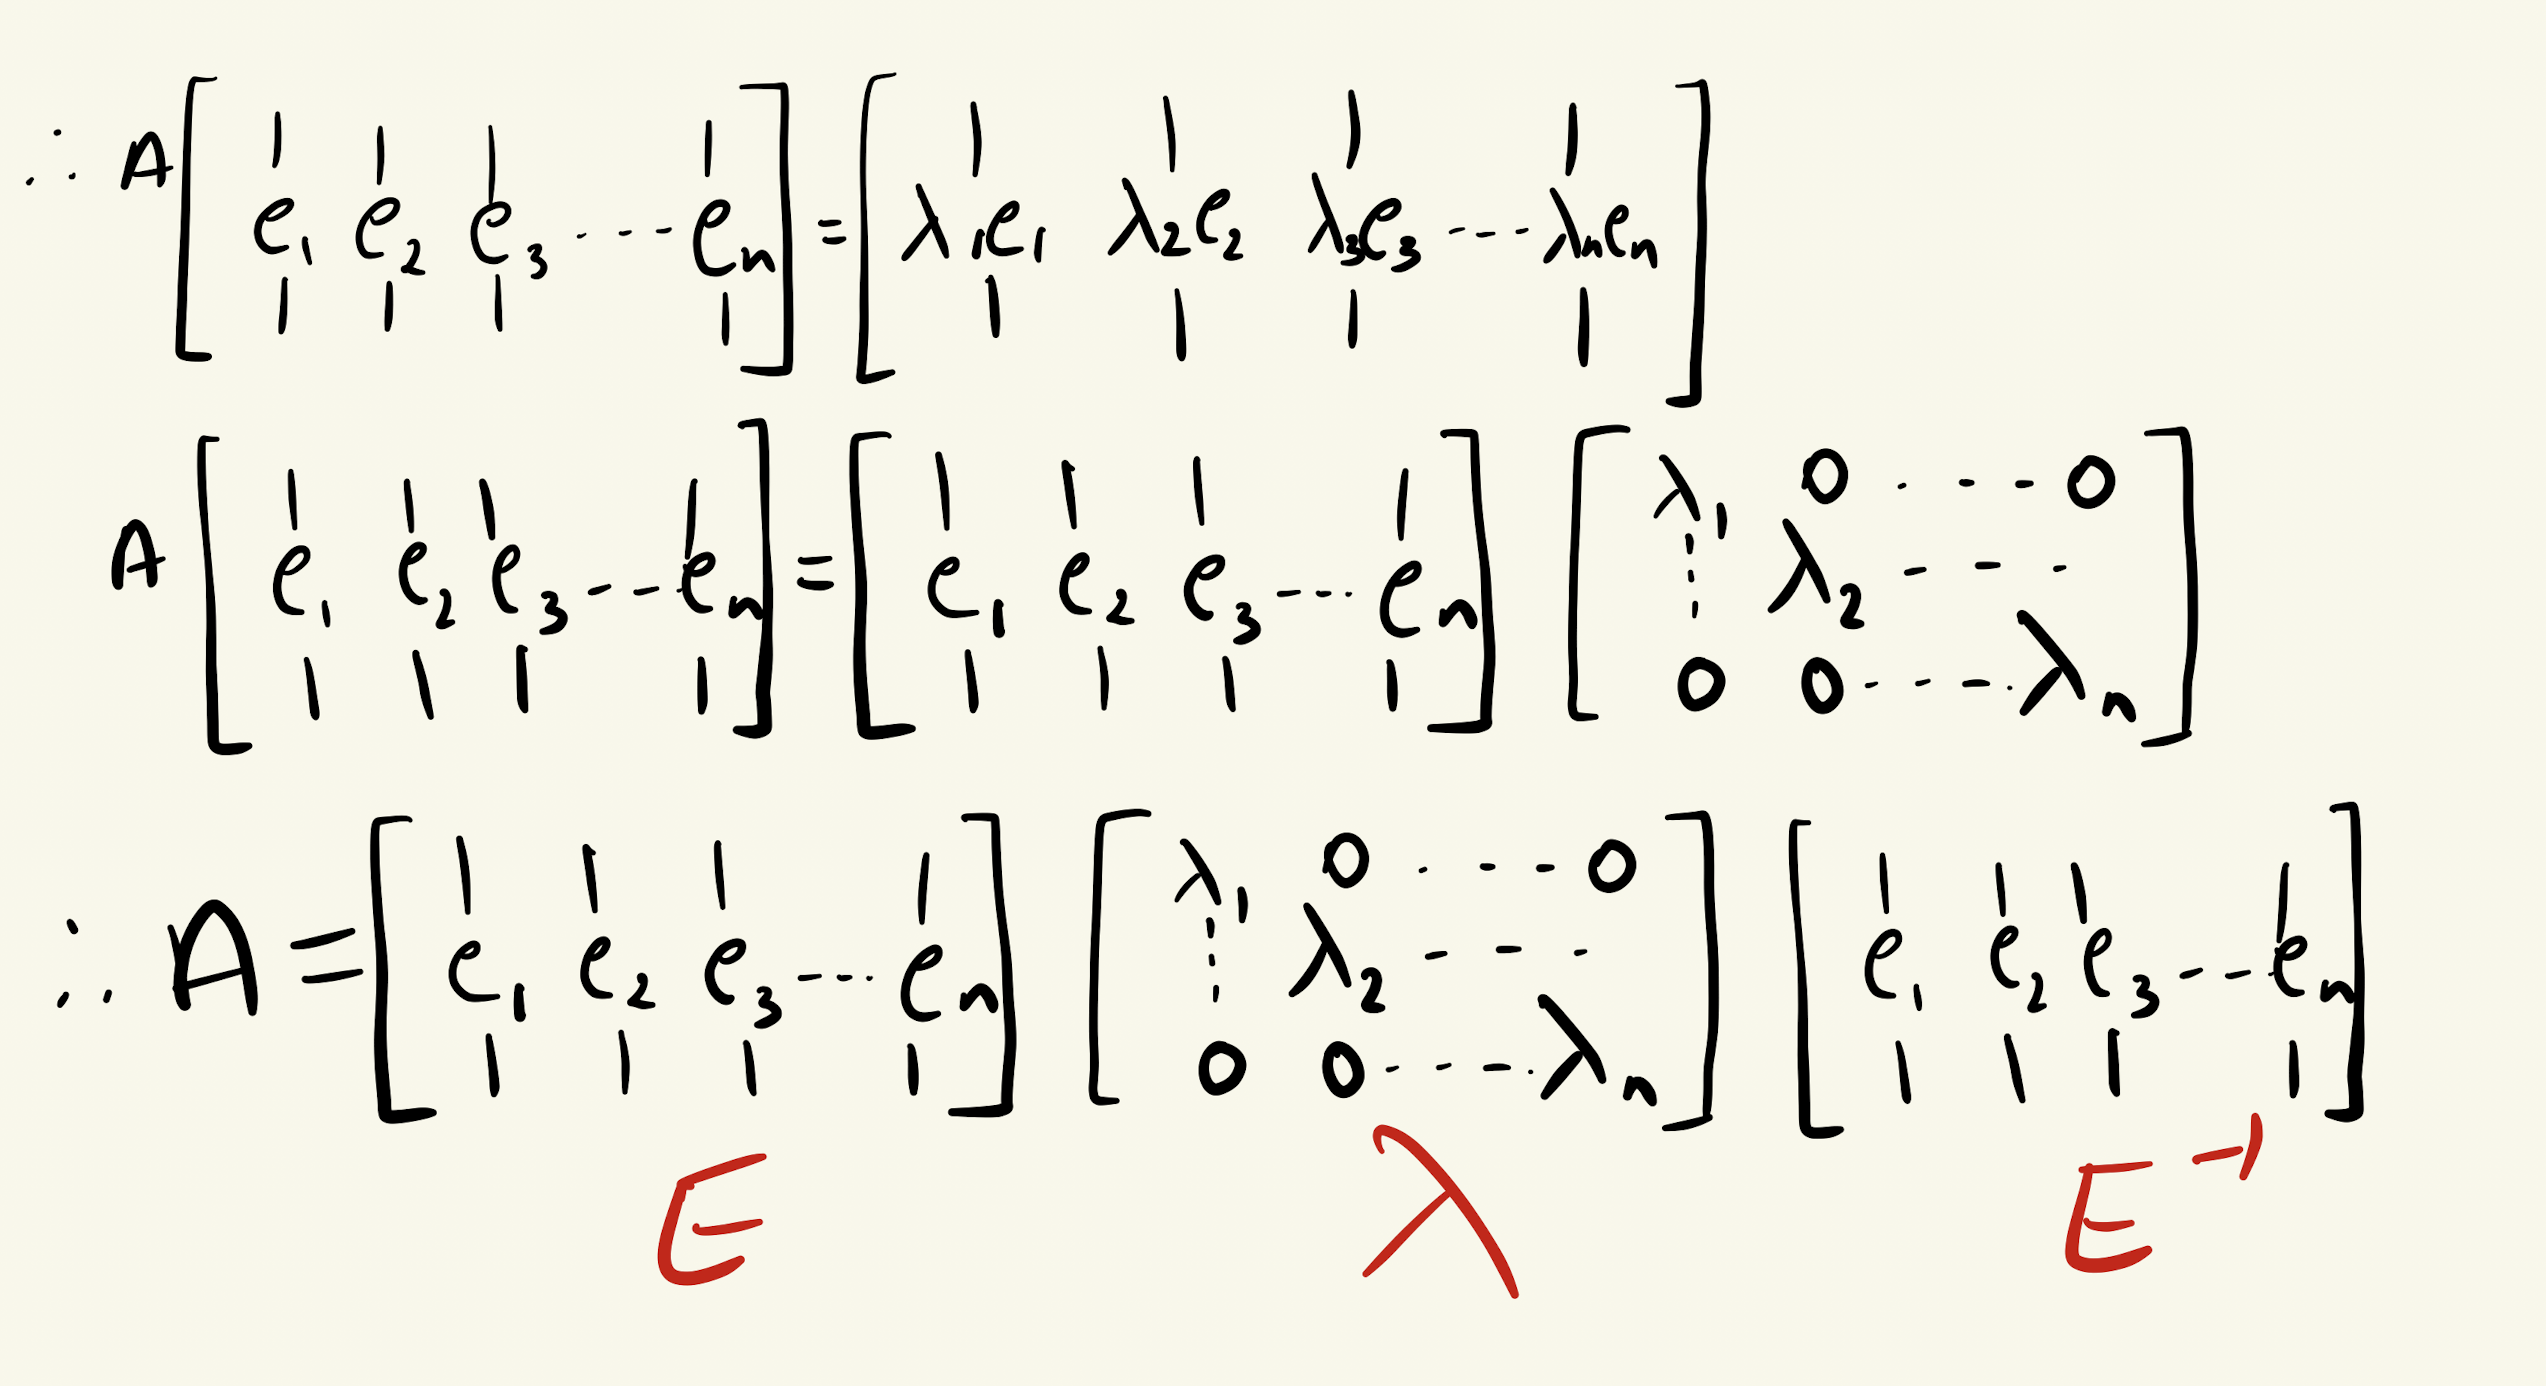 ∴ A [e₁ e₂ e₃ ---- eₙ] = [λ₁e₁ λ₂e₂ λ₃e₃ ---- λₙeₙ]
A [e₁ e₂ e₃ --- eₙ] = [e₁ e₂ e₃ ---- eₙ] [λ₁ 0 . - - 0
⋮ λ₂ - - -
0 0 - - - . λₙ]
∴ A = [e₁ e₂ e₃ ---- eₙ] [λ₁ 0 . - - 0
⋮ λ₂ - - -
0 0 - - - . λₙ] [e₁ e₂ e₃ --- eₙ]
E λ E⁻¹